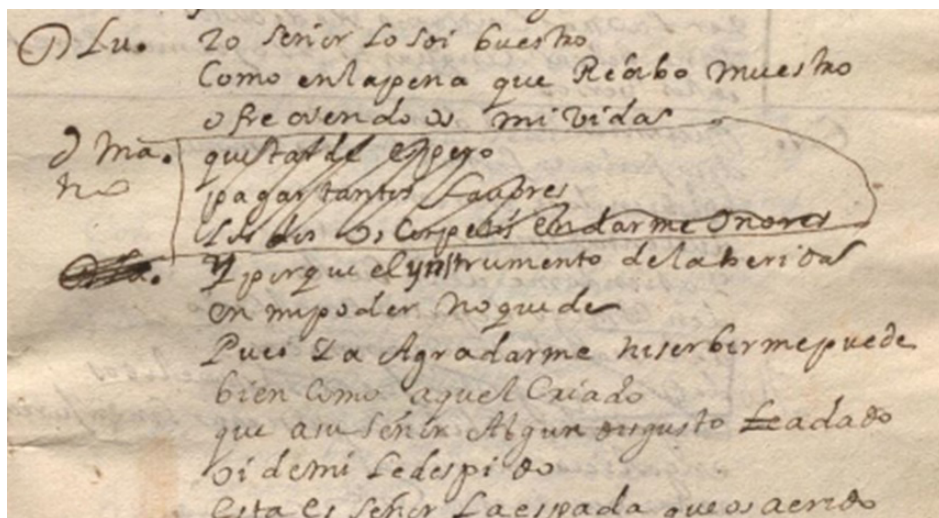 D Lu. Yo señor lo soi buestro
Como en la pena que Recibo muestro
ofreciendo os mi vida
d Ma. que tarde espero
no pagar tantos faubres
los dos os Competis en darme Onores
Y porque el ynstrumento de la herida
en mi poder no quede
Pues Ya Agradarme ni serbirme puede
bien Como aquel Criado
que a su señor Algun disgusto a dado
oi de mi le despido
esta es señor La espada que os a erido